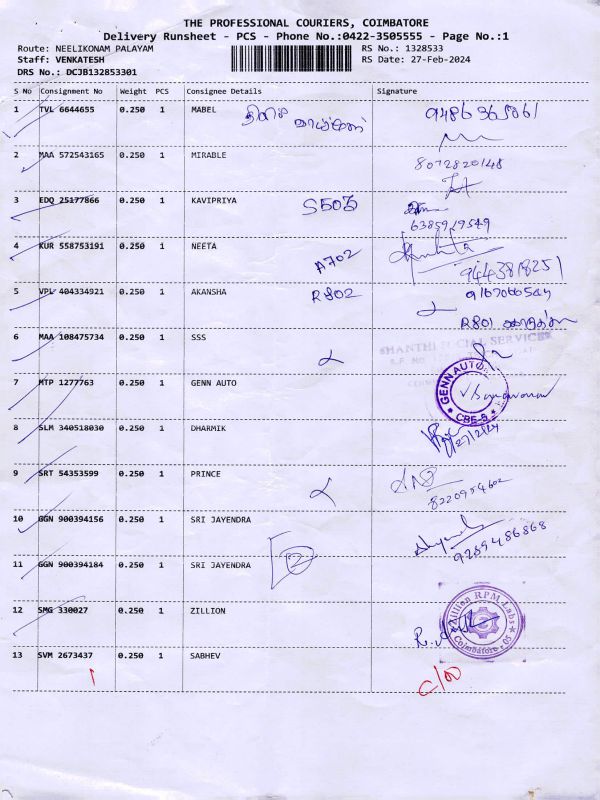 THE PROFESSIONAL COURIERS, COIMBATORE
Delivery Runsheet - PCS - Phone No.:0422-3505555 - Page No.:1
Route: NEELIKONAM PALAYAM
RS No.: 1328533
Staff: VENKATESH
RS Date: 27-Feb-2024
DRS No.: DCJB132853301
S No Consignment No Weight PCS Consignee Details Signature
1 TVL 6644655 0.250 1 MABEL
2 MAA 572543165 0.250 1 MIRABLE
8072820148
3 EDQ 25177866 0.250 1 KAVIPRIYA S503
6385919549
4 KUR 558753191 0.250 1 NEETA A702
9443818251
5 VPL 404334921 0.250 1 AKANSHA R802
R801
6 MAA 108475734 0.250 1 SSS
SHANTHI SOCIAL SERVICES
7 MTP 1277763 0.250 1 GENN AUTO
GENN AUTO
CBE-5
8 SLM 340518030 0.250 1 DHARMIK
27/2/24
9 SRT 54353599 0.250 1 PRINCE
8220954602
10 GGN 900394156 0.250 1 SRI JAYENDRA
9289486868
11 GGN 900394184 0.250 1 SRI JAYENDRA 2
12 SMG 330027 0.250 1 ZILLION
Zillion RPM Labs
Coimbatore - 05
13 SVM 2673437 0.250 1 SABHEV